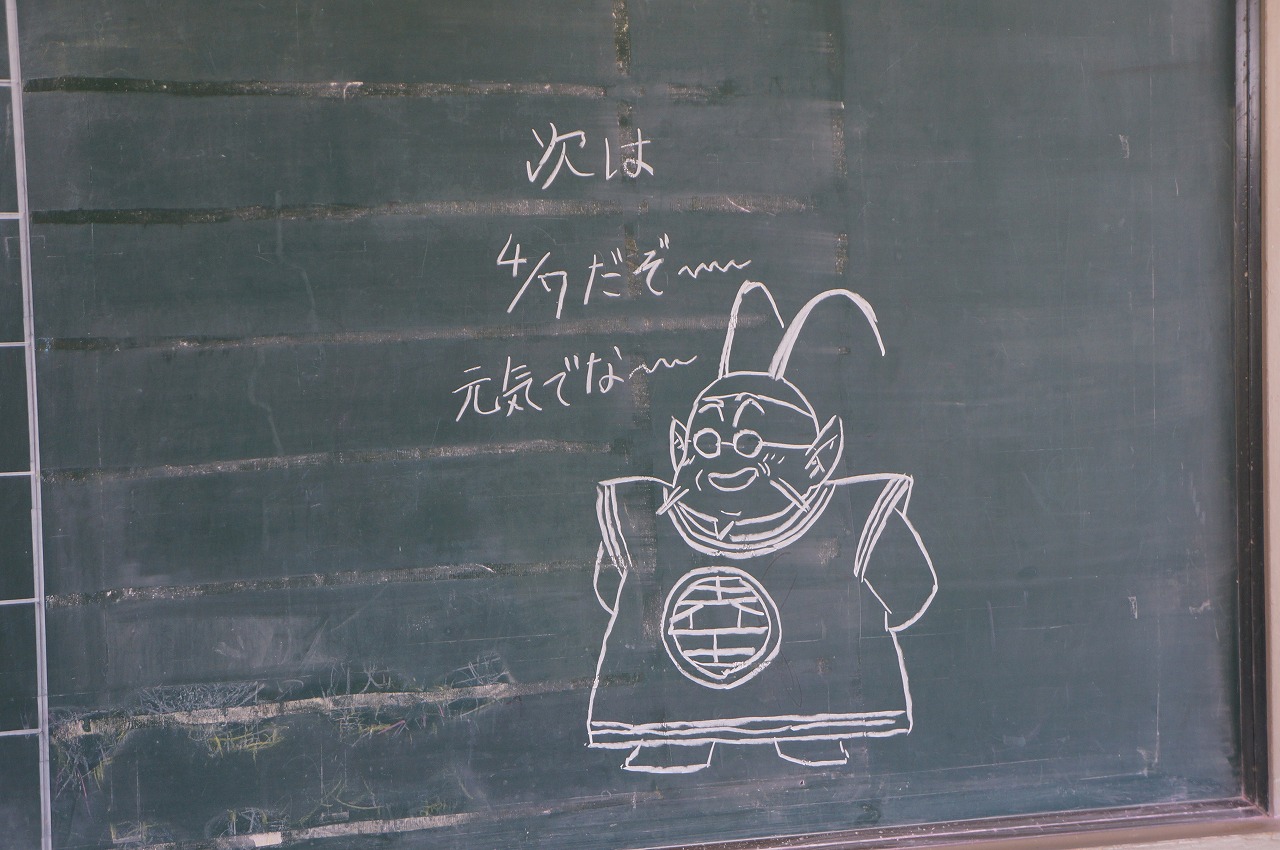 次は
4/7だぞ〜
元気でな〜